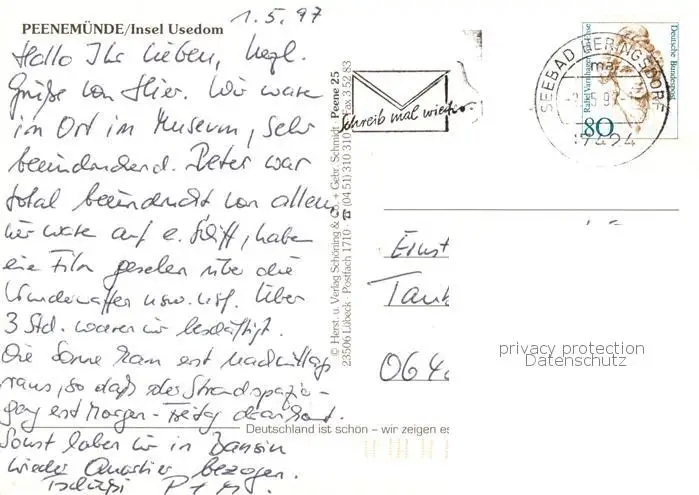 1.5.97
PEENEMÜNDE/Insel Usedom
Hallo Ihr Lieben, herzl.
Grüße von hier. Wir waren
im Ort im Museum, sehr
beeindruckend. Peter war
total beeindruckt von allem,
wir waren auf e. Schiff, haben
ein Film gesehen über die
Wunderwaffen usw. usf. Über
3 Std. waren wir beschäftigt.
Die Sonne kam erst nachmittag
raus, so daß der Strandspazier-
gang erst Morgen - Freitag dran kommt.
Sonst haben wir in Bansin
wieder Quartier bezogen.
Tschüßi P + M.
© Herst. u. Verlag Schöning & Co. + Gebr. Schmidt · Peene 25
23506 Lübeck · Postfach 1710 · ☎ (04 51) 310 310 · Fax 3 52 83
Schreib mal wieder
SEEBAD HERINGSDORF
ma
17424
Rahel Varnhagen von Ense
Deutsche Bundespost
80
Ernst
Tauh
064
privacy protection
Datenschutz
Deutschland ist schön – wir zeigen es